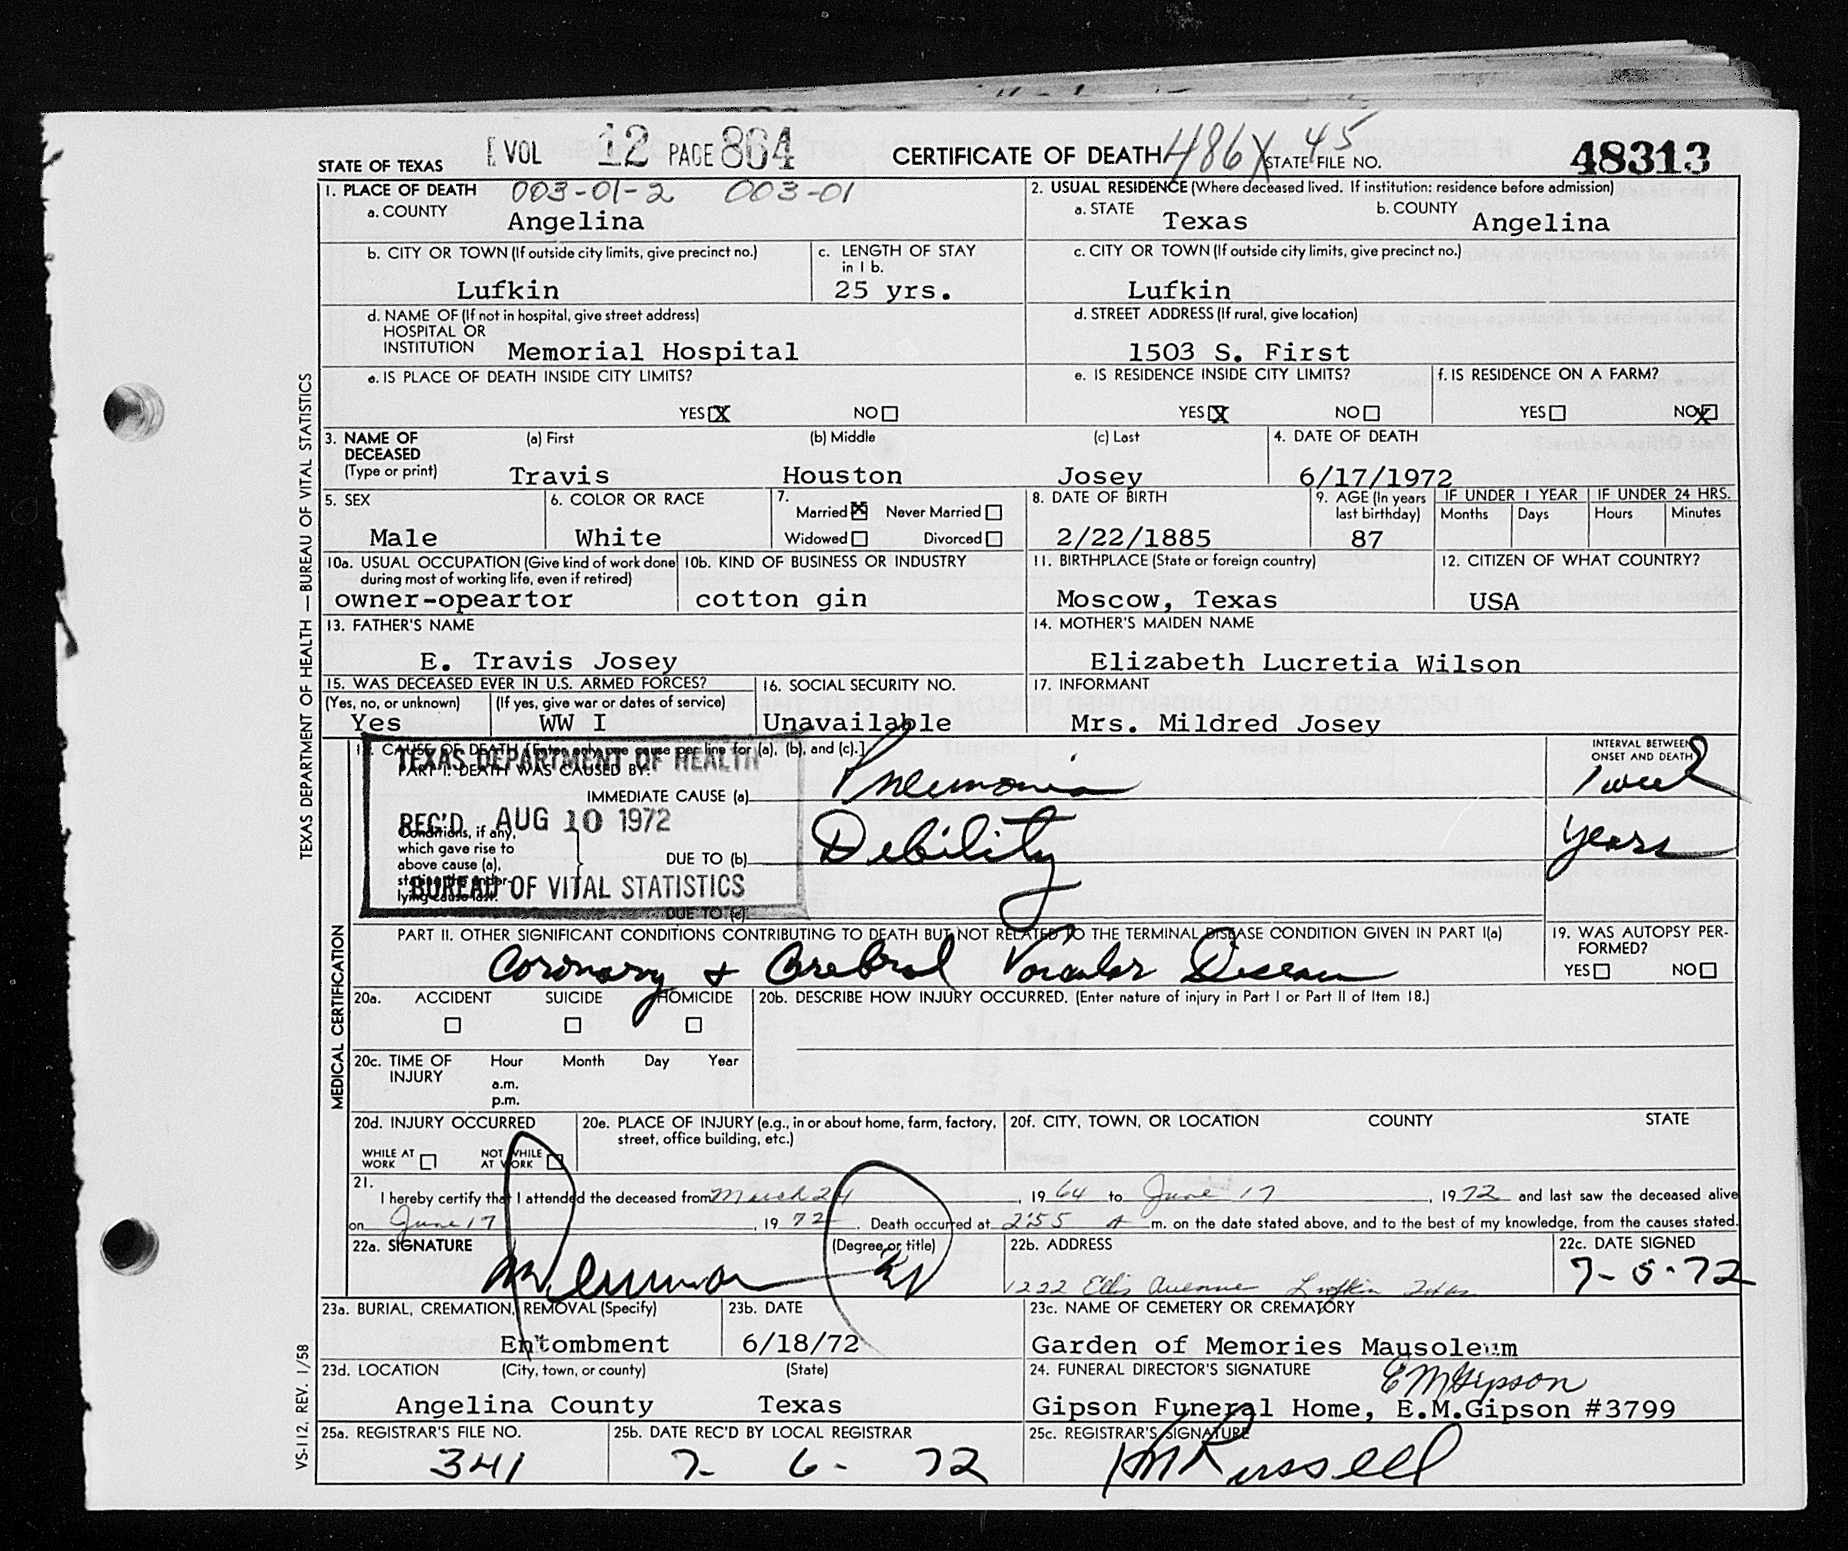 STATE OF TEXAS
VOL 12 PAGE 864
CERTIFICATE OF DEATH
486X 45
STATE FILE NO.
48313
1. PLACE OF DEATH 003-01-2 003-01
a. COUNTY
Angelina
2. USUAL RESIDENCE (Where deceased lived. If institution: residence before admission)
a. STATE Texas
b. COUNTY Angelina
b. CITY OR TOWN (If outside city limits, give precinct no.)
Lufkin
c. LENGTH OF STAY
in 1 b.
25 yrs.
c. CITY OR TOWN (If outside city limits, give precinct no.)
Lufkin
d. NAME OF (If not in hospital, give street address)
HOSPITAL OR
INSTITUTION Memorial Hospital
d. STREET ADDRESS (If rural, give location)
1503 S. First
e. IS PLACE OF DEATH INSIDE CITY LIMITS?
YES X NO
e. IS RESIDENCE INSIDE CITY LIMITS?
YES X NO
f. IS RESIDENCE ON A FARM?
YES NO X
3. NAME OF
DECEASED
(Type or print)
(a) First (b) Middle (c) Last
Travis Houston Josey
4. DATE OF DEATH
6/17/1972
5. SEX
Male
6. COLOR OR RACE
White
7.
Married X Never Married
Widowed Divorced
8. DATE OF BIRTH
2/22/1885
9. AGE (In years
last birthday)
87
IF UNDER 1 YEAR
Months Days
IF UNDER 24 HRS.
Hours Minutes
10a. USUAL OCCUPATION (Give kind of work done
during most of working life, even if retired)
owner-opeartor
10b. KIND OF BUSINESS OR INDUSTRY
cotton gin
11. BIRTHPLACE (State or foreign country)
Moscow, Texas
12. CITIZEN OF WHAT COUNTRY?
USA
13. FATHER'S NAME
E. Travis Josey
14. MOTHER'S MAIDEN NAME
Elizabeth Lucretia Wilson
15. WAS DECEASED EVER IN U.S. ARMED FORCES?
(Yes, no, or unknown) (If yes, give war or dates of service)
Yes WW I
16. SOCIAL SECURITY NO.
Unavailable
17. INFORMANT
Mrs. Mildred Josey
18. CAUSE OF DEATH [Enter only one cause per line for (a), (b), and (c).]
PART I. DEATH WAS CAUSED BY:
IMMEDIATE CAUSE (a) Pneumonia
INTERVAL BETWEEN
ONSET AND DEATH
1 week
TEXAS DEPARTMENT OF HEALTH
REC'D AUG 10 1972
BUREAU OF VITAL STATISTICS
Conditions, if any,
which gave rise to
above cause (a),
stating the under-
lying cause last.
DUE TO (b) Debility
years
DUE TO (c)
PART II. OTHER SIGNIFICANT CONDITIONS CONTRIBUTING TO DEATH BUT NOT RELATED TO THE TERMINAL DISEASE CONDITION GIVEN IN PART I(a)
Coronary & Cerebral Vascular Disease
19. WAS AUTOPSY PER-
FORMED?
YES NO
20a. ACCIDENT SUICIDE HOMICIDE
20b. DESCRIBE HOW INJURY OCCURRED. (Enter nature of injury in Part I or Part II of Item 18.)
20c. TIME OF
INJURY
Hour Month Day Year
a.m.
p.m.
20d. INJURY OCCURRED
WHILE AT
WORK
NOT WHILE
AT WORK
20e. PLACE OF INJURY (e.g., in or about home, farm, factory,
street, office building, etc.)
20f. CITY, TOWN, OR LOCATION COUNTY STATE
21.
I hereby certify that I attended the deceased from March 24, 19 64 to June 17, 19 72 and last saw the deceased alive
on June 17, 19 72. Death occurred at 2:55 A m. on the date stated above, and to the best of my knowledge, from the causes stated.
22a. SIGNATURE (Degree or title)
22b. ADDRESS
1222 Ellis Avenue Lufkin Texas
22c. DATE SIGNED
7-5-72
23a. BURIAL, CREMATION, REMOVAL (Specify)
Entombment
23b. DATE
6/18/72
23c. NAME OF CEMETERY OR CREMATORY
Garden of Memories Mausoleum
23d. LOCATION (City, town, or county) (State)
Angelina County Texas
24. FUNERAL DIRECTOR'S SIGNATURE
E M Gipson
Gipson Funeral Home, E.M.Gipson #3799
25a. REGISTRAR'S FILE NO.
341
25b. DATE REC'D BY LOCAL REGISTRAR
7-6-72
25c. REGISTRAR'S SIGNATURE
Russell
TEXAS DEPARTMENT OF HEALTH — BUREAU OF VITAL STATISTICS
MEDICAL CERTIFICATION
VS-112, REV. 1/58